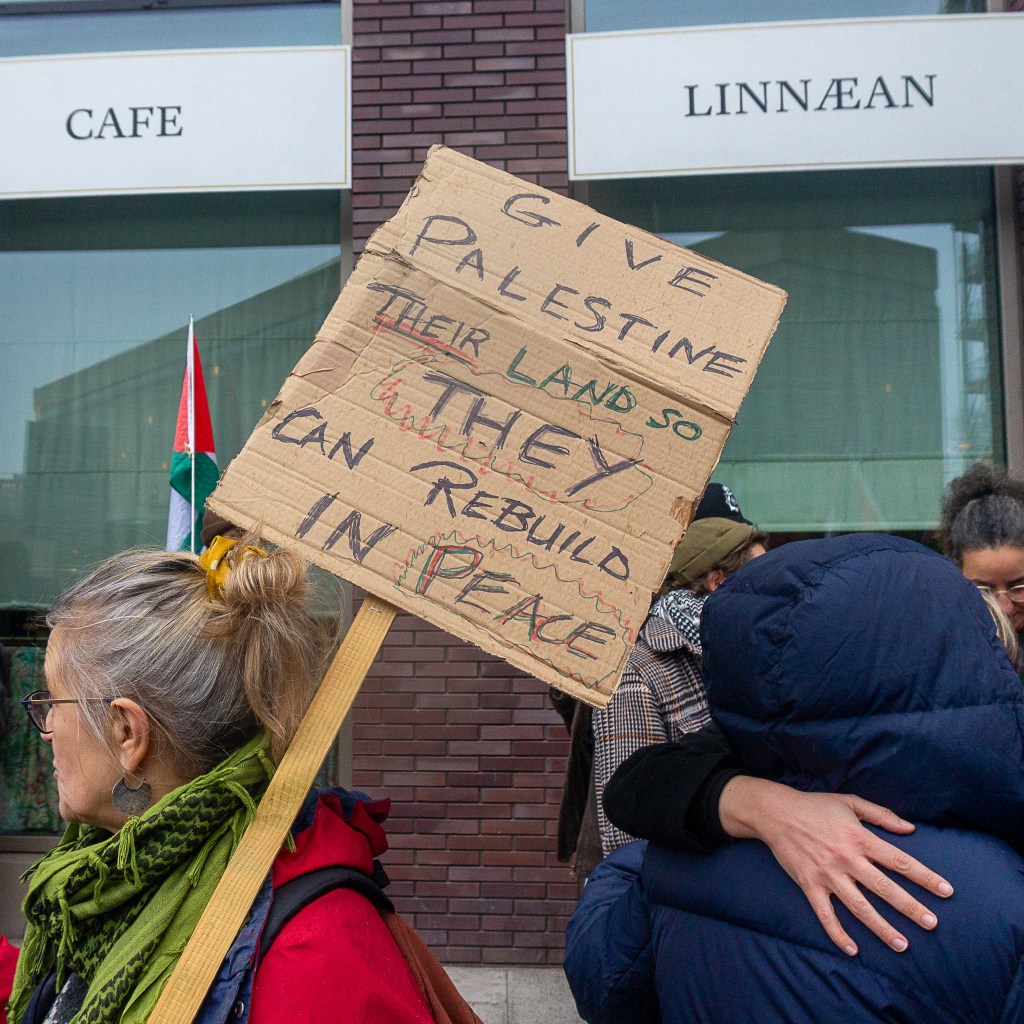 CAFE
LINNÆAN
GIVE
PALESTINE
THEIR LAND SO
THEY
CAN REBUILD
IN PEACE